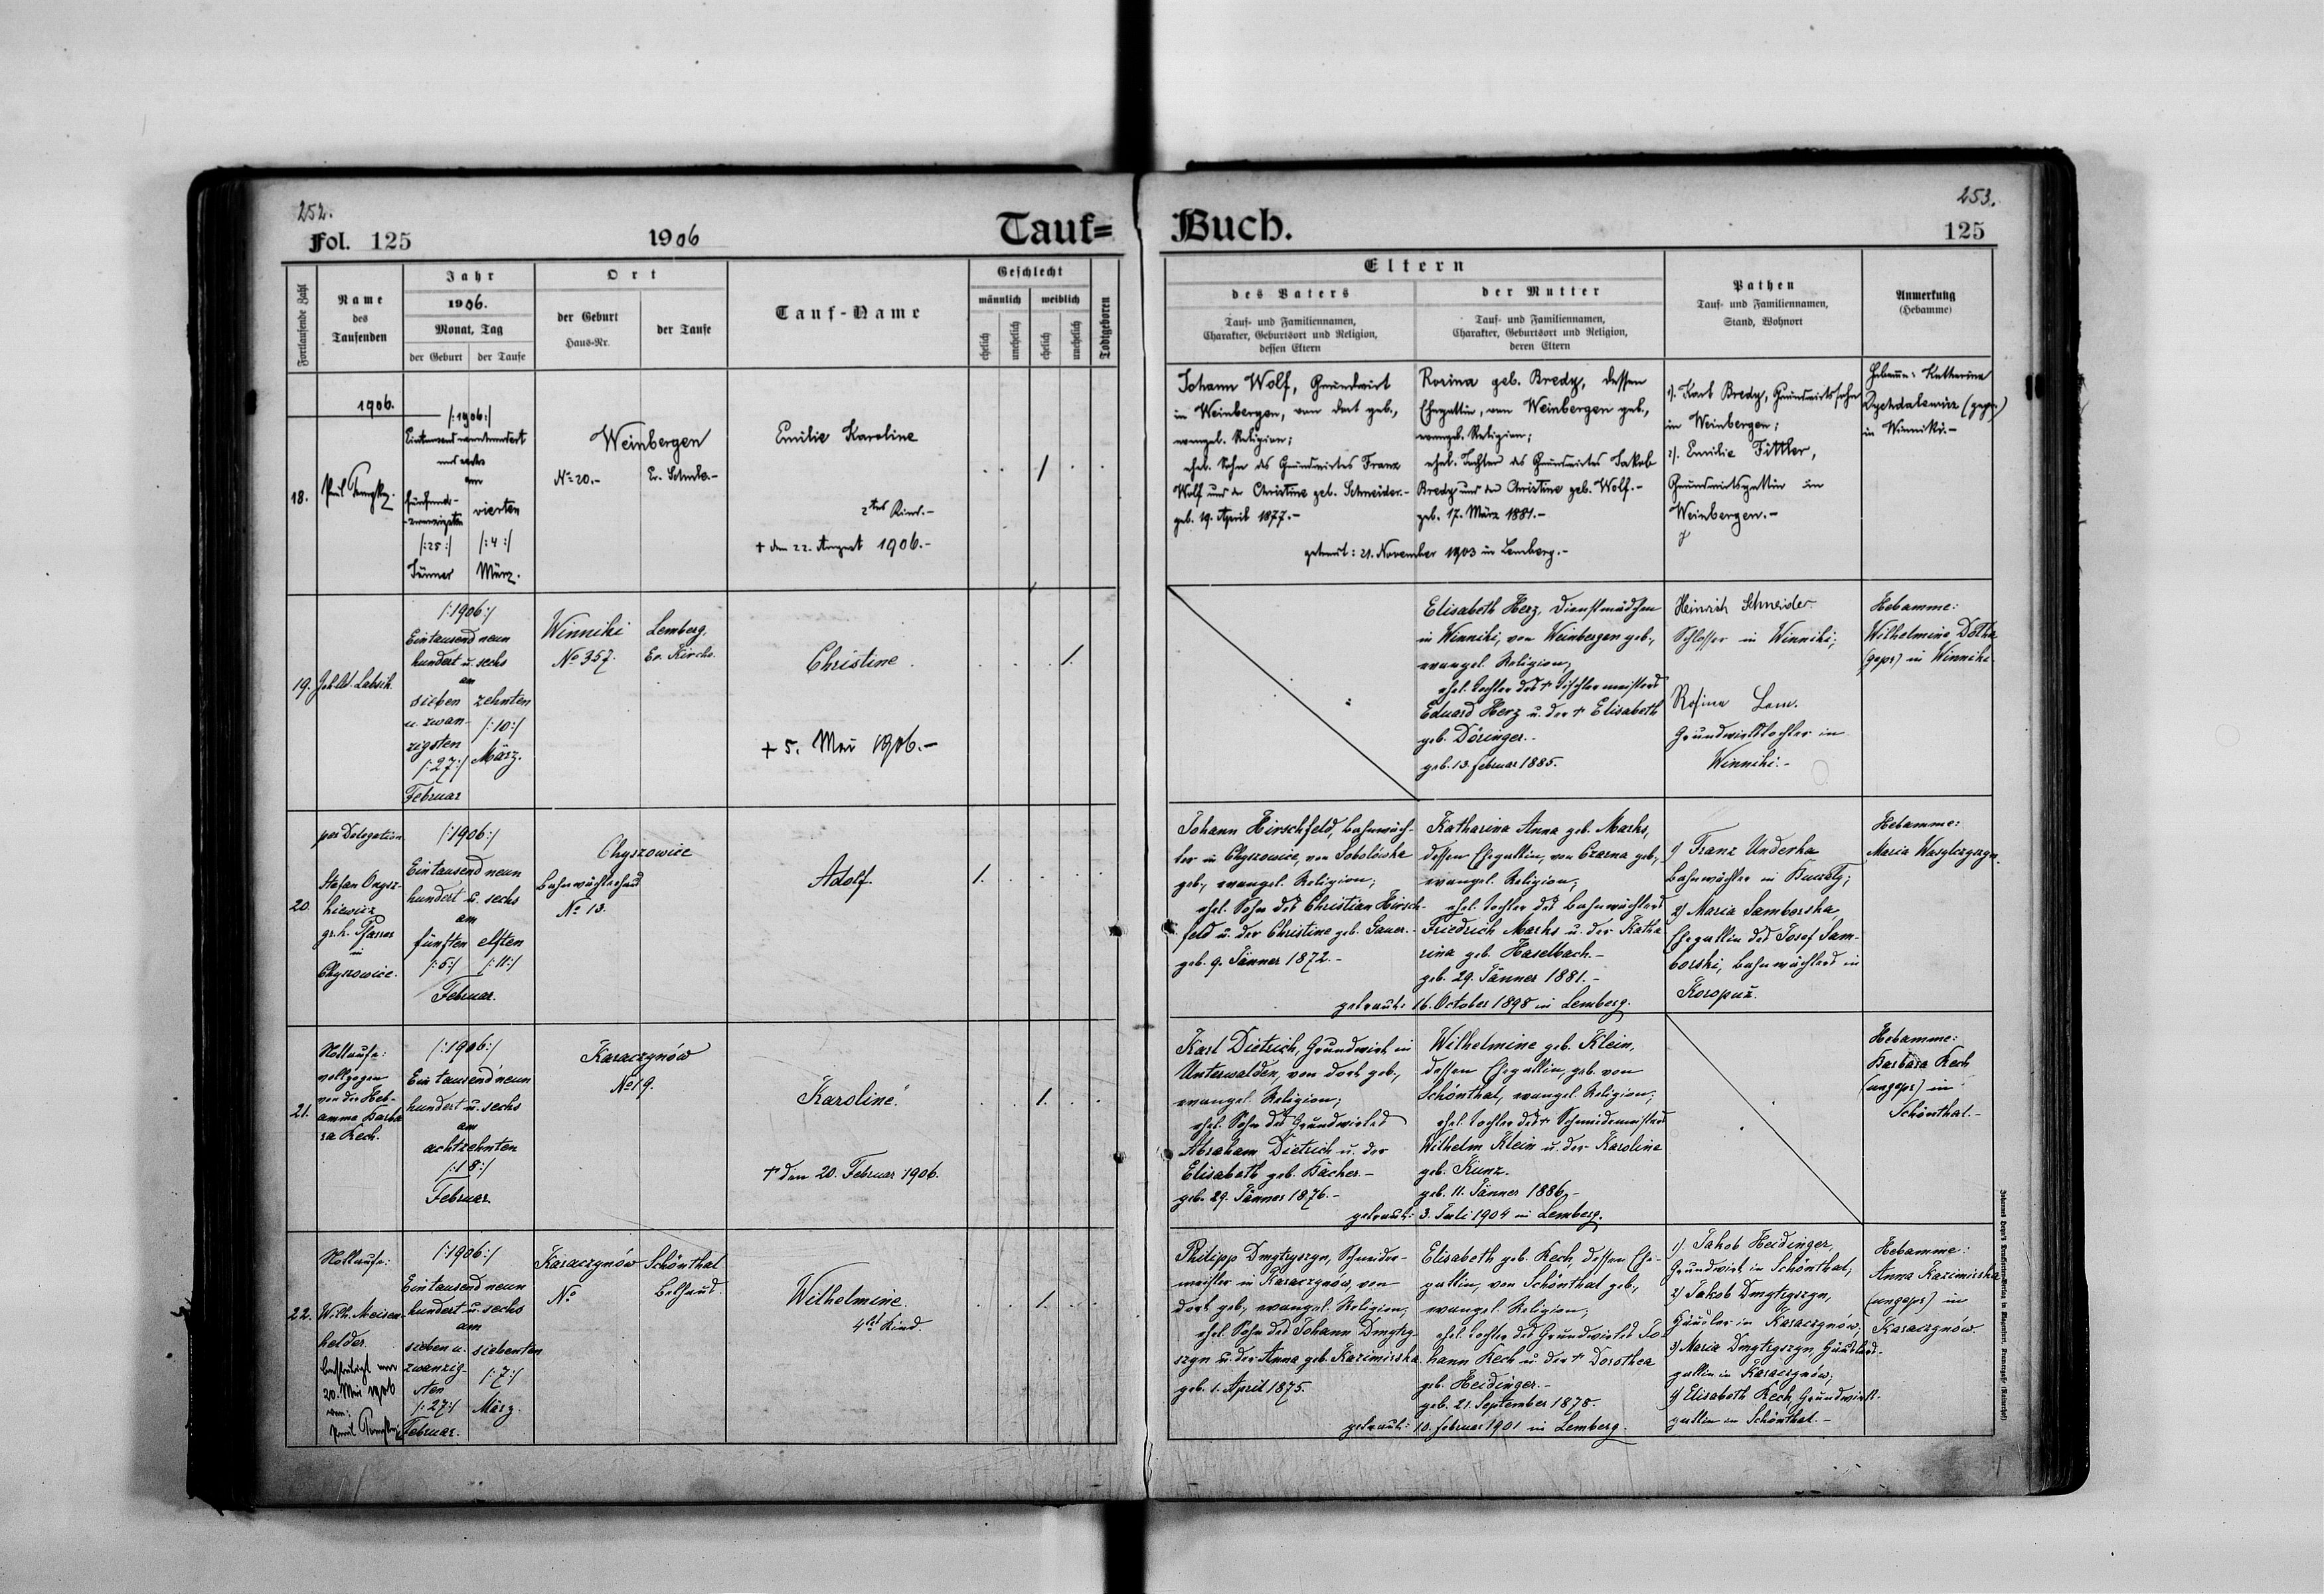 252.
Fol. 125
1906
Tauf=
Fortlaufende Zahl
Name
des
Taufenden
Jahr
1906.
Monat, Tag
der Geburt
der Taufe
Ort
der Geburt
Haus-Nr.
der Taufe
Tauf-Name
Geschlecht
männlich
weiblich
ehelich
unehelich
ehelich
unehelich
Todtgeboren
1906.
18.
/:1906:/
Eintausendneunhundert
und sechs
am
fünfund-
-zwanzigsten
/:25:/
Jänner
vierten
/:4:/
März.
Weinbergen
No 20.-
Ev. Schule.-
Emilie Karoline
2tes Kind.-
† den 22. August 1906.-
1
19.
/:1906:/
Eintausend neun
hundert u. sechs
am
sieben
u. zwan-
zigsten
/:27:/
Februar
zehnten
/:10:/
März.
Winniki
No 357.
Lemberg,
Ev. Kirche.
Christine.
+ 5. Mai 1906.-
1.
20.
per Delegation
Stefan
gr. k. Pfarrer
in
Chyszowice.
/:1906:/
Eintausend neun
hundert u. sechs
am
fünften elften
/:5:/ /:11:/
Februar.
Chyszowice
Bahnwächterhaus
No 13.
Adolf.
1.
21.
Nottaufe:
vollzogen
von der Heb-
amme Barba
ra Kech.
/:1906:/
Ein tausend neun
hundert u. sechs
am
achtzehnten
/:18:/
Februar
Karaczynów
No 19.
Karoline.
† den 20. Februar 1906.
1.
22.
Nottaufe:
Wilh. Meisen-
helder.
20. Mai 1906
von:
/:1906:/
Eintausend neun
hundert u. sechs
am
sieben u.
zwanzig-
sten
/:27:/
Februar.
siebenten
/:7:/
März.
Karaczynów
No
Schönthal
Bethaus.
Wilhelmine.
4tes Kind.
1.
253.
Buch.
125
Eltern
des Vaters
Tauf- und Familiennamen,
Charakter, Geburtsort und Religion,
dessen Eltern
der Mutter
Tauf- und Familiennamen,
Charakter, Geburtsort und Religion,
deren Eltern
Pathen
Tauf- und Familiennamen,
Stand, Wohnort
Anmerkung
(Hebamme)
Johann Wolf, Grundwirt
in Weinbergen, von dort geb.,
evangel. Religion;
ehel. Sohn des Grundwirtes Franz
Wolf und der Christine geb. Schneider.-
geb. 19. April 1877.-
Rosina geb. Bredy, dessen
Ehegattin, von Weinbergen geb.,
evangel. Religion;
ehel. Tochter des Grundwirtes Jakob
Bredy und der Christine geb. Wolf.-
geb. 17. März 1881.-
getraut: 21. November 1903 in Lemberg.-
1). Karl Bredy, Grundwirtssohn
in Weinbergen;
2). Emilie Fittler,
Grundwirtsgattin in
Weinbergen.-
Hebamme: Katharina
in Winniki.-
Elisabeth Herz, Dienstmädchen
in Winniki, von Weinbergen geb.,
evangel. Religion;
ehel. Tochter des † Tischlermeisters
Eduard Herz u. der † Elisabeth
geb. Döringer.-
geb. 13. Februar 1885.
Heinrich Schneider.
Schlosser in Winniki;
Rosina Lem.
Grundwirtstochter in
Winniki.-
Hebamme:
Wilhelmine
(gepr.) in Winniki.
Johann Hirschfeld, Bahnwäch-
ter in Chyszowice, von
geb., evangel. Religion;
ehel. Sohn des Christian Hirsch-
feld u. der Christine geb. Sauer.-
geb. 9. Jänner 1872.-
Katharina Anna geb. Marks,
dessen Ehegattin, von Czarna geb.,
evangel. Religion;
ehel. Tochter des Bahnwächters
Friedrich Marks u. der Katha
rina geb. Haselbach.-
geb. 29. Jänner 1881.-
getraut: 16. October 1898 in Lemberg.
1) Franz Underka
Bahnwächter in
2) Maria Samborska,
Ehegattin des Josef Sam-
borski, Bahnwächters in
Koropuż.
Hebamme:
Maria
Karl Dietrich, Grundwirt in
Unterwalden, von dort geb.,
evangel. Religion;
ehel. Sohn des Grundwirtes
Abraham Dietrich u. der
Elisabeth geb. Bächer.-
geb. 29. Jänner 1876.-
Wilhelmine geb. Klein,
dessen Ehegattin, geb. von
Schönthal, evangel. Religion;
ehel. Tochter des † Schmiedemeisters
Wilhelm Klein u. der Karoline
geb. Kunz.
geb. 11. Jänner 1886.-
getraut: 3. Juli 1904 in Lemberg.
Hebamme:
Barbara Kech
(ungepr.) in
Schönthal.-
Philipp Dmytryszyn, Schneider-
meister in Karaczynów, von
dort geb., evangel. Religion;
ehel. Sohn des Johann Dmytry-
szyn u. der Anna geb. Kazimirska
geb. 1. April 1875.
Elisabeth geb. Kech, dessen Ehe-
gattin, von Schönthal geb.,
evangel. Religion;
ehel. Tochter des Grundwirtes Jo-
hann Kech u. der † Dorothea
geb. Heidinger.-
geb. 21. September 1878.
getraut: 10. Februar 1901 in Lemberg.
1). Jakob Heidinger,
Grundwirt in Schönthal;
2) Jakob Dmytryszyn,
Häusler in Karaczynów;
3) Maria Dmytryszyn, Häuslers-
gattin in Karaczynów;
4) Elisabeth Kech, Grundwirts-
gattin in Schönthal.-
Hebamme:
Anna Kazimirska
(ungepr.) in
Karaczynów.